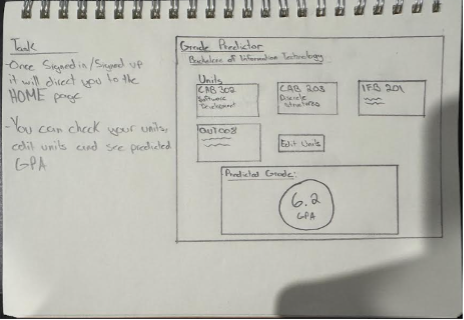 Task
- Once Signed in / Signed up
it will direct you to the
HOME page
- You can check your units,
edit units and see predicted
GPA
Grade Predictor
Bachelor of Information Technology
Units
CAB 302
Software
CAB 203
Discrete
Structures
IFB 201
Edit Units
Predicted Grade:
6.2
GPA